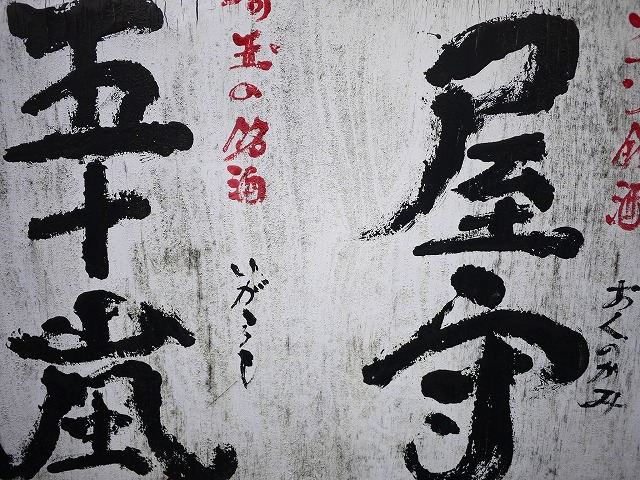 銘酒
おくのかみ
屋守
埼玉の銘酒
いがらし
五十嵐